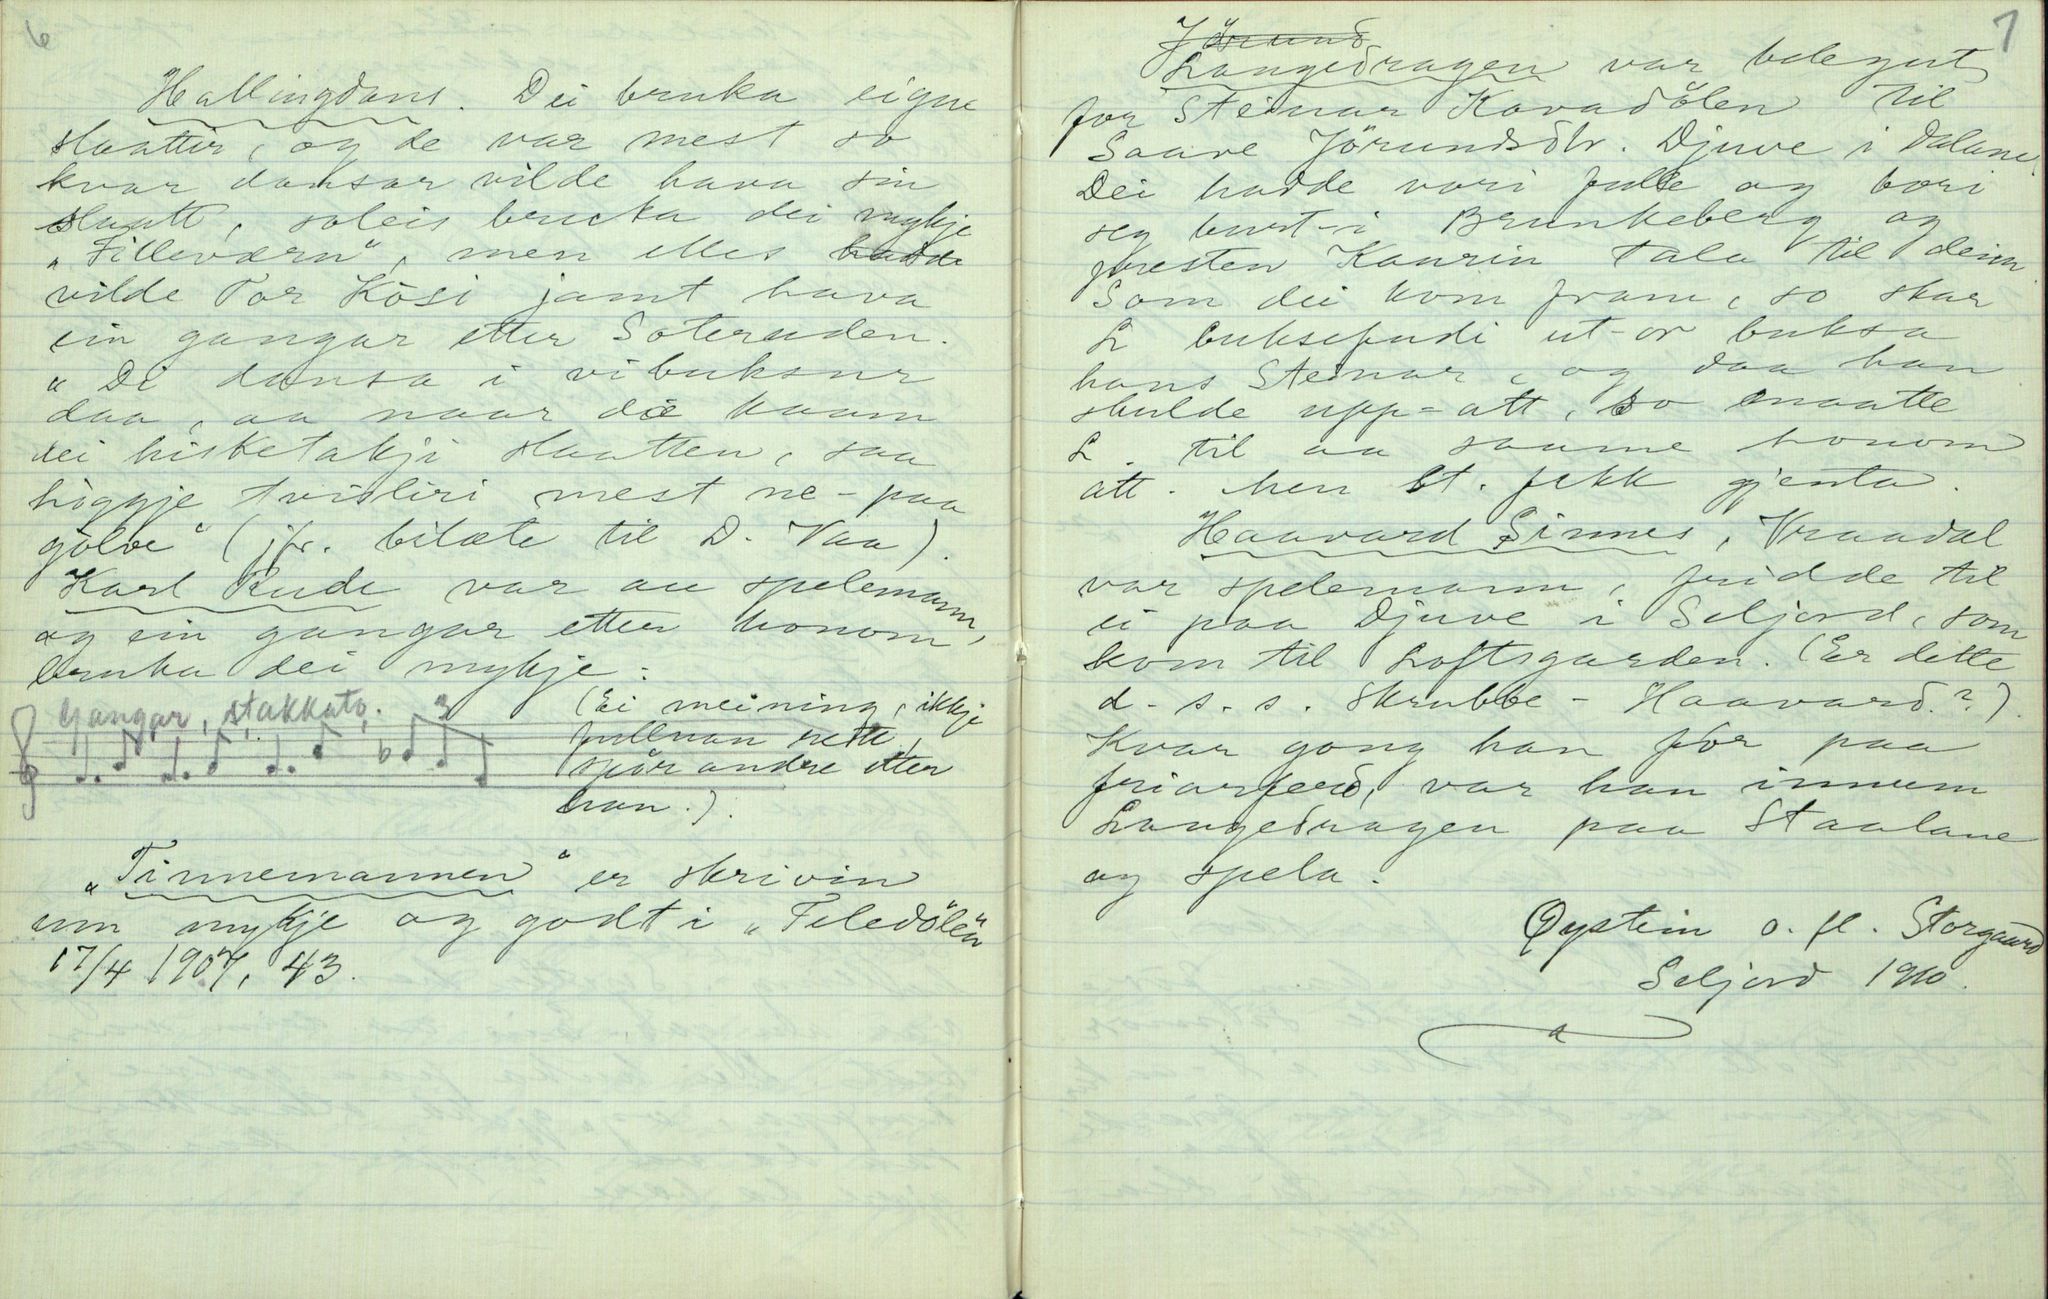 6
Hallingdans. Dei bruka eigne
slaattir, og de var mest so
kvar dansar vilde hava sin
slaatt, soleis bruka dei mykje
„Filleværn“, men elles hadde
vilde Tor Kòsi jamt hava
ein gangar etter Soteruden.
„Di dansa i vibuksur
daa, aa naar die kaam
dei hisketakji slaatten, saa
höggje tvisliri mest ne-paa
gòlve“ (jfr. bilæte til D. Vaa).
Karl Rudi var au spelemann,
og ein gangar etter honom
bruka dei mykje:
Gangar, stakkato.
3
(Ei meining, ikkje
fullnan rett,
spör andre etter
han.).
„Tinnemannen“ er skrivin
um mykje og godt i „Teledölen“
17/4 1907, 43.
7
Jörund
Langedragen var belegut
for Steinar Kovadölen til
Saave Jörundsdtr. Djuve i Dalane,
Dei hadde vori fulle og bori
seg burt-i Brunkeberg og
presten Kaurin tala til deim
Som dei kom fram, so skar
L buksefudi ut-or buksa
hans Steinar, og daa han
skulde upp-att, so maatte
L. til aa saume honom
att. Men St. fekk gjenta.
Haavard Sinnes, Kraadal
var spelemann, fridde til
ei paa Djuve i Seljord, som
kom til Loftsgarden. (Er dette
d-s.s. Skrubbe-Haavard?).
Kvar gong han fór paa
friarferd, var han innum
Langedragen paa Staalane
og spela.
Øystein o. fl. Storgaard
Seljord 1910.